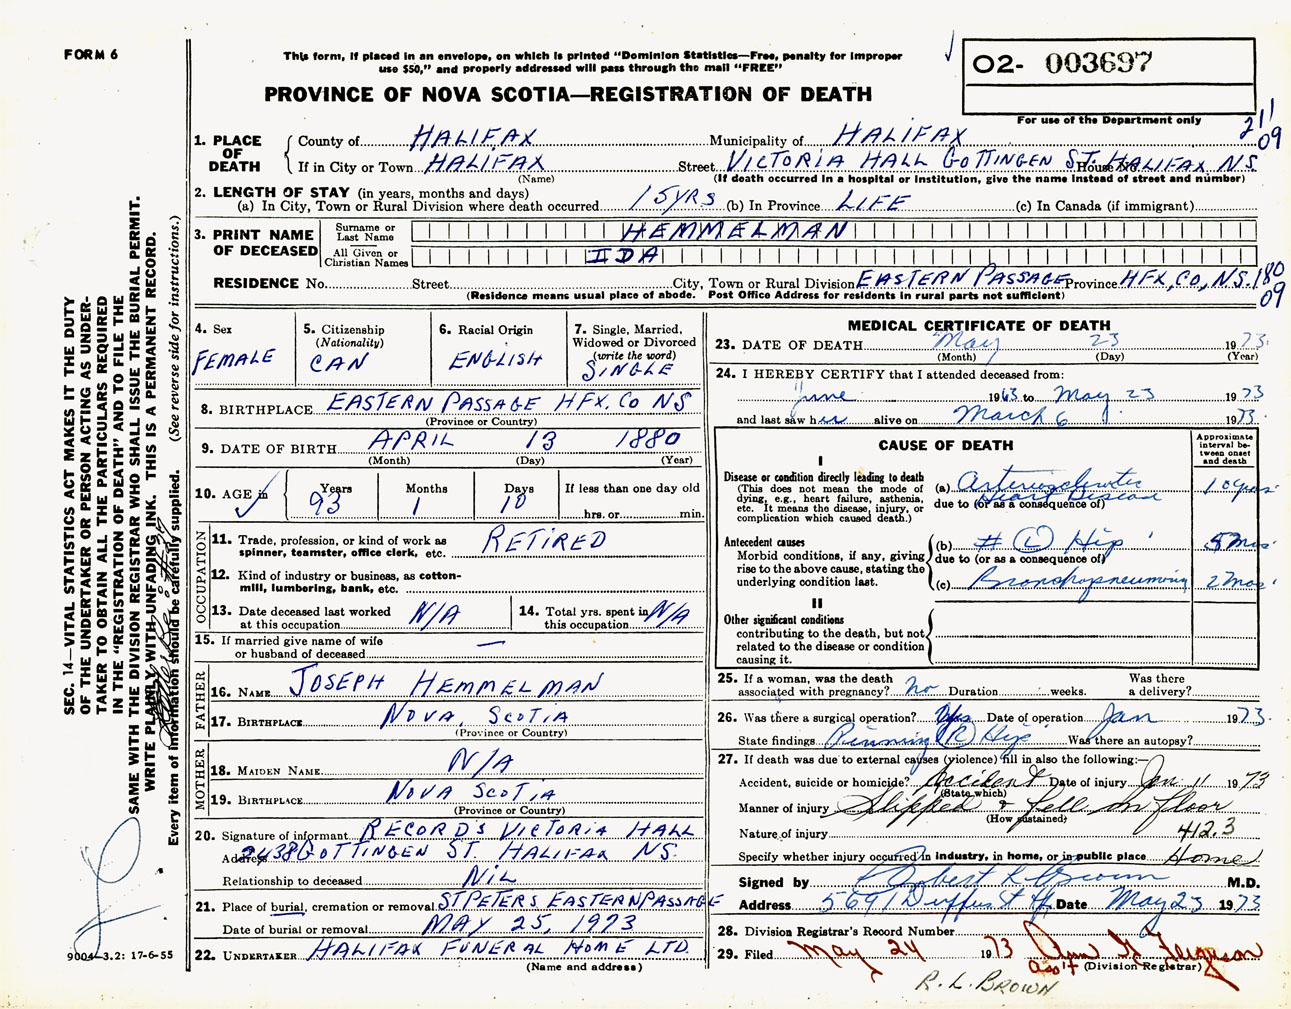 FORM 6
This form, if placed in an envelope, on which is printed "Dominion Statistics—Free, penalty for improper
use $50," and properly addressed will pass through the mail "FREE"
O2- 003697
For use of the Department only
PROVINCE OF NOVA SCOTIA—REGISTRATION OF DEATH
211
09
1. PLACE OF DEATH
County of HALIFAX Municipality of HALIFAX
If in City or Town HALIFAX Street VICTORIA HALL GOTTINGEN ST. House No. HALIFAX N.S.
(Name) (If death occurred in a hospital or institution, give the name instead of street and number)
2. LENGTH OF STAY (in years, months and days)
(a) In City, Town or Rural Division where death occurred 15 YRS (b) In Province LIFE (c) In Canada (if immigrant)
3. PRINT NAME OF DECEASED
Surname or Last Name HEMMELMAN
All Given or Christian Names IDA
RESIDENCE No. Street City, Town or Rural Division EASTERN PASSAGE Province HFX, CO, NS. 180
09
(Residence means usual place of abode. Post Office Address for residents in rural parts not sufficient)
4. Sex
FEMALE
5. Citizenship
(Nationality)
CAN
6. Racial Origin
ENGLISH
7. Single, Married,
Widowed or Divorced
(write the word)
SINGLE
8. BIRTHPLACE EASTERN PASSAGE HFX. CO NS
(Province or Country)
9. DATE OF BIRTH APRIL 13 1880
(Month) (Day) (Year)
10. AGE in
Years Months Days If less than one day old
93 1 10
hrs. or min.
OCCUPATION
11. Trade, profession, or kind of work as
spinner, teamster, office clerk, etc. RETIRED
12. Kind of industry or business, as cotton-
mill, lumbering, bank, etc.
13. Date deceased last worked
at this occupation N/A
14. Total yrs. spent in
this occupation N/A
15. If married give name of wife
or husband of deceased —
FATHER
16. NAME JOSEPH HEMMELMAN
17. BIRTHPLACE NOVA SCOTIA
(Province or Country)
MOTHER
18. MAIDEN NAME N/A
19. BIRTHPLACE NOVA SCOTIA
(Province or Country)
20. Signature of informant RECORD'S VICTORIA HALL
Address 2438 GOTTINGEN ST. HALIFAX NS
Relationship to deceased NIL
21. Place of burial, cremation or removal ST PETERS EASTERN PASSAGE
Date of burial or removal MAY 25, 1973
22. UNDERTAKER HALIFAX FUNERAL HOME LTD.
(Name and address)
MEDICAL CERTIFICATE OF DEATH
23. DATE OF DEATH May 23 1973
(Month) (Day) (Year)
24. I HEREBY CERTIFY that I attended deceased from:
June 1963 to May 23 1973
and last saw her alive on March 6 1973
CAUSE OF DEATH
Approximate
interval be-
tween onset
and death
I
Disease or condition directly leading to death
(This does not mean the mode of
dying, e.g., heart failure, asthenia,
etc. It means the disease, injury, or
complication which caused death.)
(a) Arteriosclerotic
Heart Disease
10 yrs.
due to (or as a consequence of)
Antecedent causes
Morbid conditions, if any, giving
rise to the above cause, stating the
underlying condition last.
(b) # Hip 5 mos
due to (or as a consequence of)
(c) Bronchopneumonia 2 mos
II
Other significant conditions
contributing to the death, but not
related to the disease or condition
causing it.
25. If a woman, was the death
associated with pregnancy? no Duration weeks. Was there
a delivery?
26. Was there a surgical operation? Yes Date of operation Jan 1973
State findings Pinning (R) Hip Was there an autopsy?
27. If death was due to external causes (violence) fill in also the following:—
Accident, suicide or homicide? Accident Date of injury Jan. 11 1973
(State which)
Manner of injury Slipped & fell on floor
(How sustained)
Nature of injury 412.3
Specify whether injury occurred in industry, in home, or in public place Home
Signed by Robert L Brown M.D.
Address 5691 Duffus St Hfx Date May 23 1973
28. Division Registrar's Record Number
29. Filed May 24 1973 Ferguson
Ass't (Division Registrar)
R. L. BROWN
SEC. 14—VITAL STATISTICS ACT MAKES IT THE DUTY
OF THE UNDERTAKER OR PERSON ACTING AS UNDER-
TAKER TO OBTAIN ALL THE PARTICULARS REQUIRED
IN THE "REGISTRATION OF DEATH" AND TO FILE THE
SAME WITH THE DIVISION REGISTRAR WHO SHALL ISSUE THE BURIAL PERMIT.
WRITE PLAINLY WITH UNFADING INK. THIS IS A PERMANENT RECORD.
Every item of information should be carefully supplied. (See reverse side for instructions.)
9004-3.2: 17-6-55